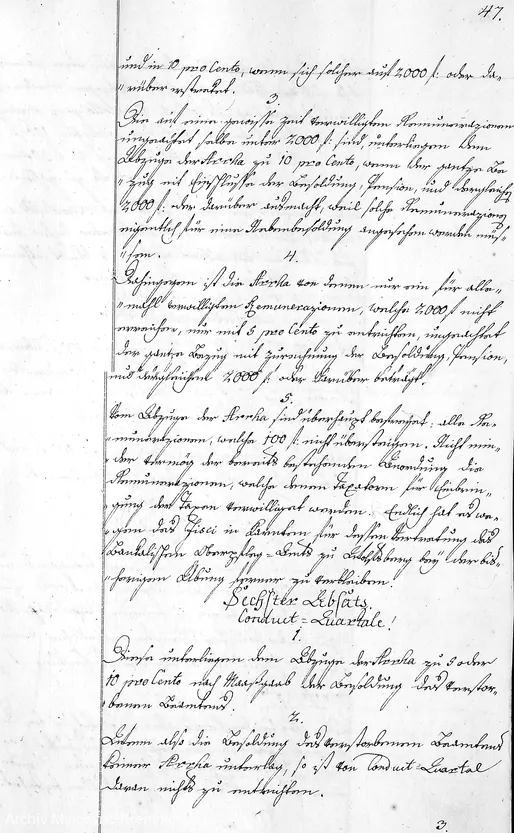 47.
und in 10 pro Cento, wenn sich solcher auf 2000 f: oder da-
rüber erstreket.
3.
Die auf eine gewisse Zeit verwilligten Remunerazionen
ungeachtet selbe unter 2000 f: sind, unterliegen dem
Abzuge der Arrha zu 10 pro Cento, wenn der ganze Be-
zug mit Einschlusse der Besoldung, Pension, und dergleichen
2000 f: oder darüber ausmacht, weil solche Remunerazionen
eigentlich für eine Nebenbesoldung angesehen werden müs-
sen.
4.
Dahingegen ist die Arrha von denen nur ein für alle-
mahl verwilligten Remunerazionen, welche 2000 f nicht
erreichen, nur mit 5 pro Cento zu entrichten, ungeachtet
der ganze Bezug mit zurechnung der Besoldung, Pension,
und dergleichen 2000 f: oder darüber beträgt.
5.
Vom Abzuge der Arrha sind überhaupt befreyet: alle Re-
munerazionen, welche 100 f: nicht übersteigen. Nicht min-
der vermög der bereits bestehenden Anordnung die
Remunerazionen, welche denen Taxatorn für Einbrin-
gung der Taxen verwilliget werden. Endlich hat es we-
gen des Fisci in Kärnten für dessen Vertretung des
Bankalischen Oberpfleg-Amts zu bey der bis-
herigen Übung ferner zu verbleiben.
Sechster Absatz.
Conduct-Quartale!
1.
Diese unterliegen dem Abzuge der Arrha zu 5 oder
10 pro Cento nach Maasgaab der Besoldung des verstor-
benen Beamtens.
2.
Wenn also die Besoldung des verstorbenen Beamtens
keiner Arrha unterlag, so ist von Conduct-Quartal
daran nichts zu entrichten.
3.